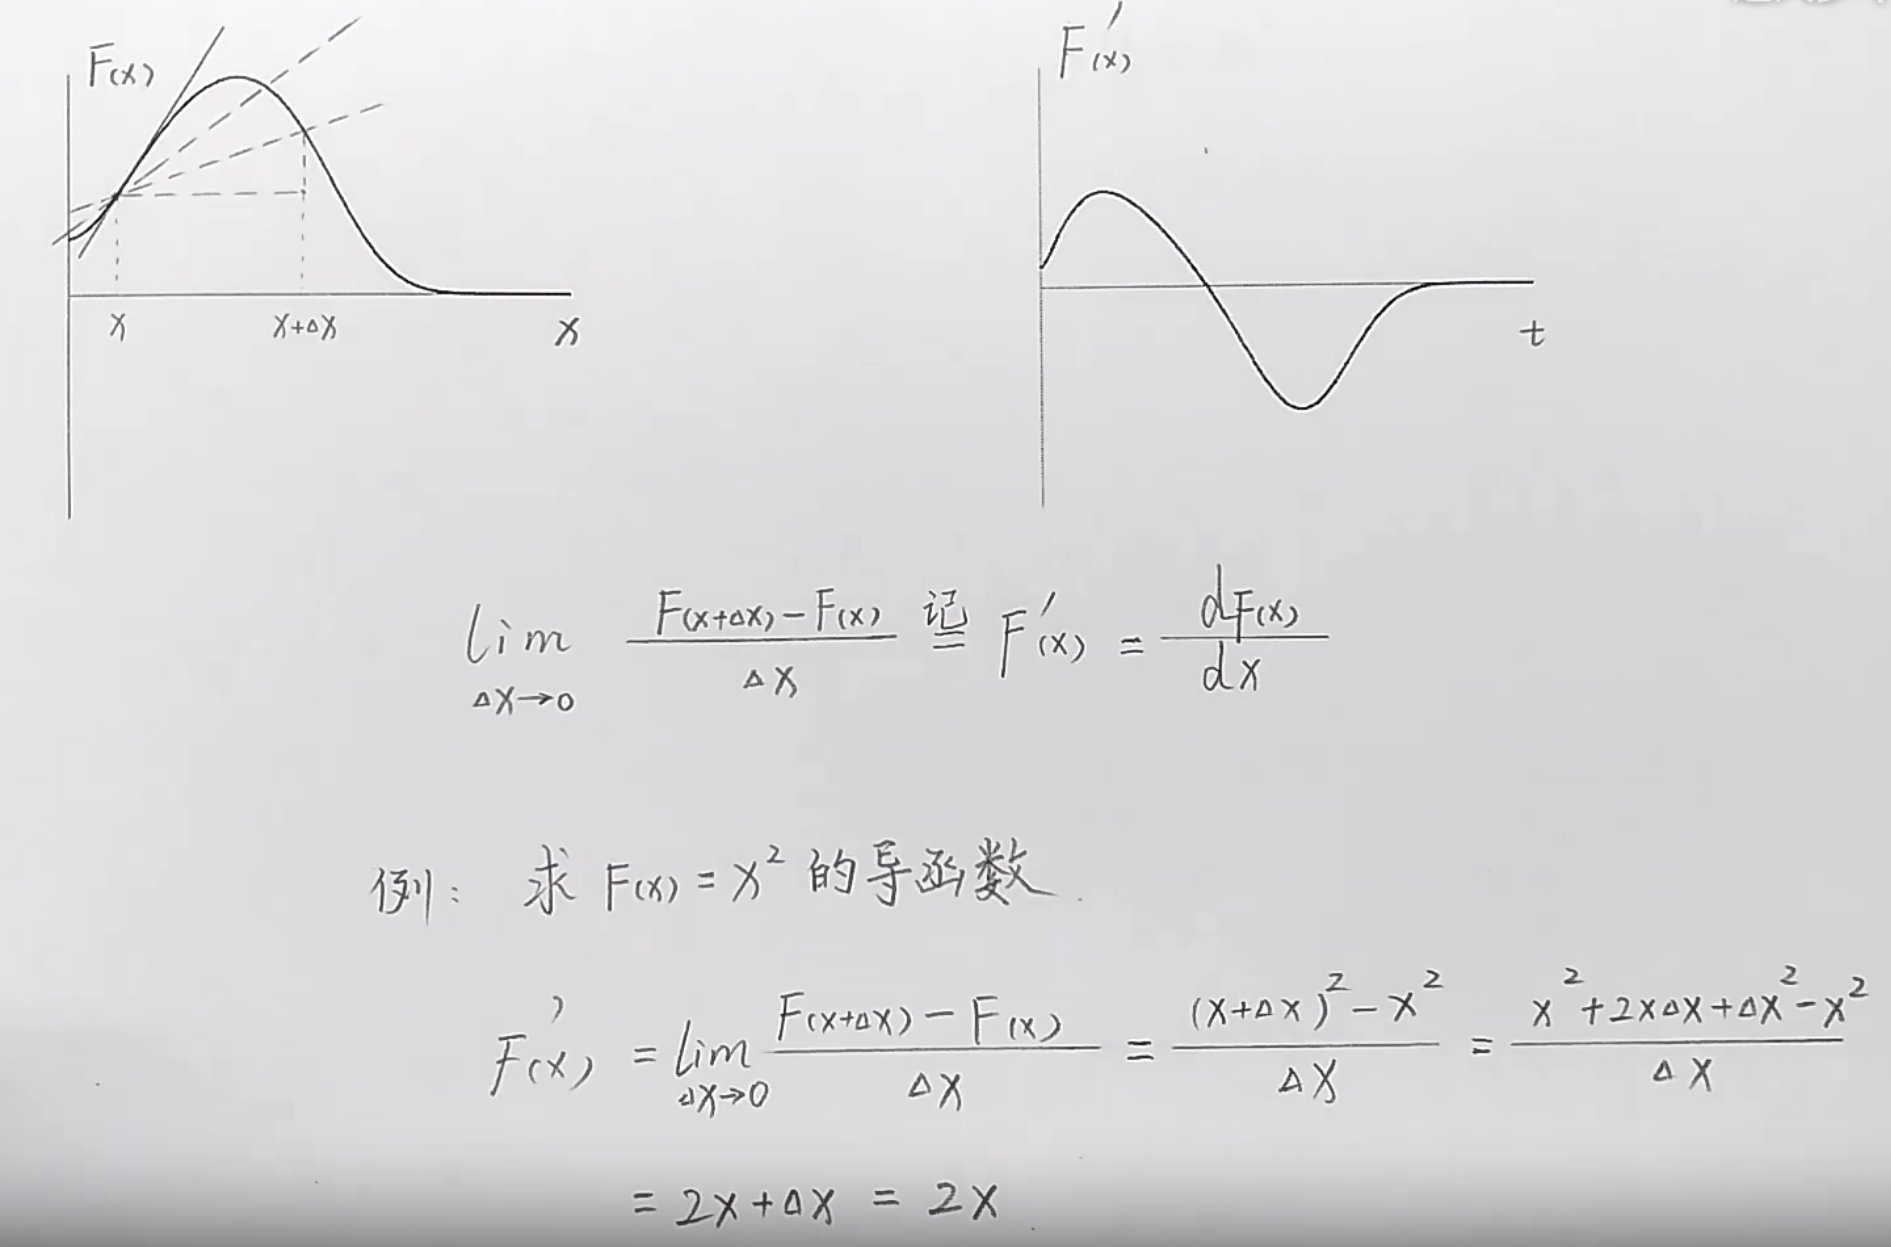 F(x)
x
x+Δx
x
F'(x)
t
lim Δx→0 F(x+Δx)-F(x) / Δx 记= F'(x) = dF(x) / dx
例: 求 F(x) = x² 的导函数.
F'(x) = lim Δx→0 F(x+Δx) - F(x) / Δx = (x+Δx)² - x² / Δx = x²+2xΔx+Δx²-x² / Δx
= 2x+Δx = 2x